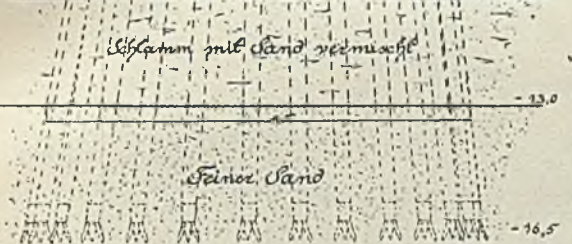 Schlamm mit Sand vermischt
- 13,0
Feiner Sand
- 16,5